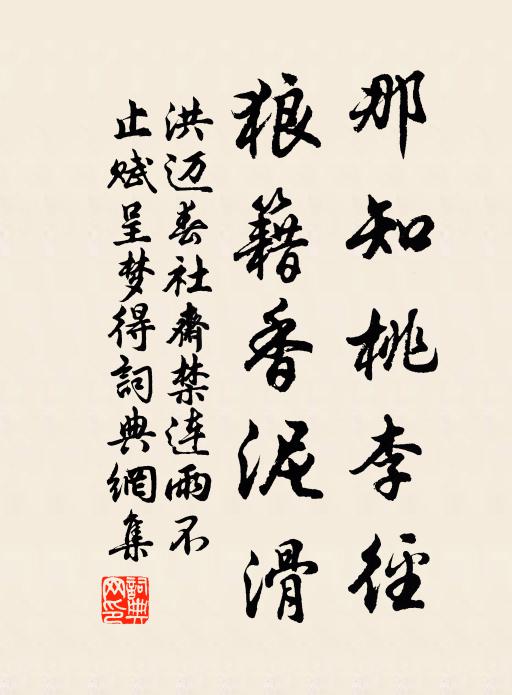 那知桃李徑
狼籍香泥滑
洪迈春社齋禁连雨不
止赋呈梦得詞典網集
詞典網印